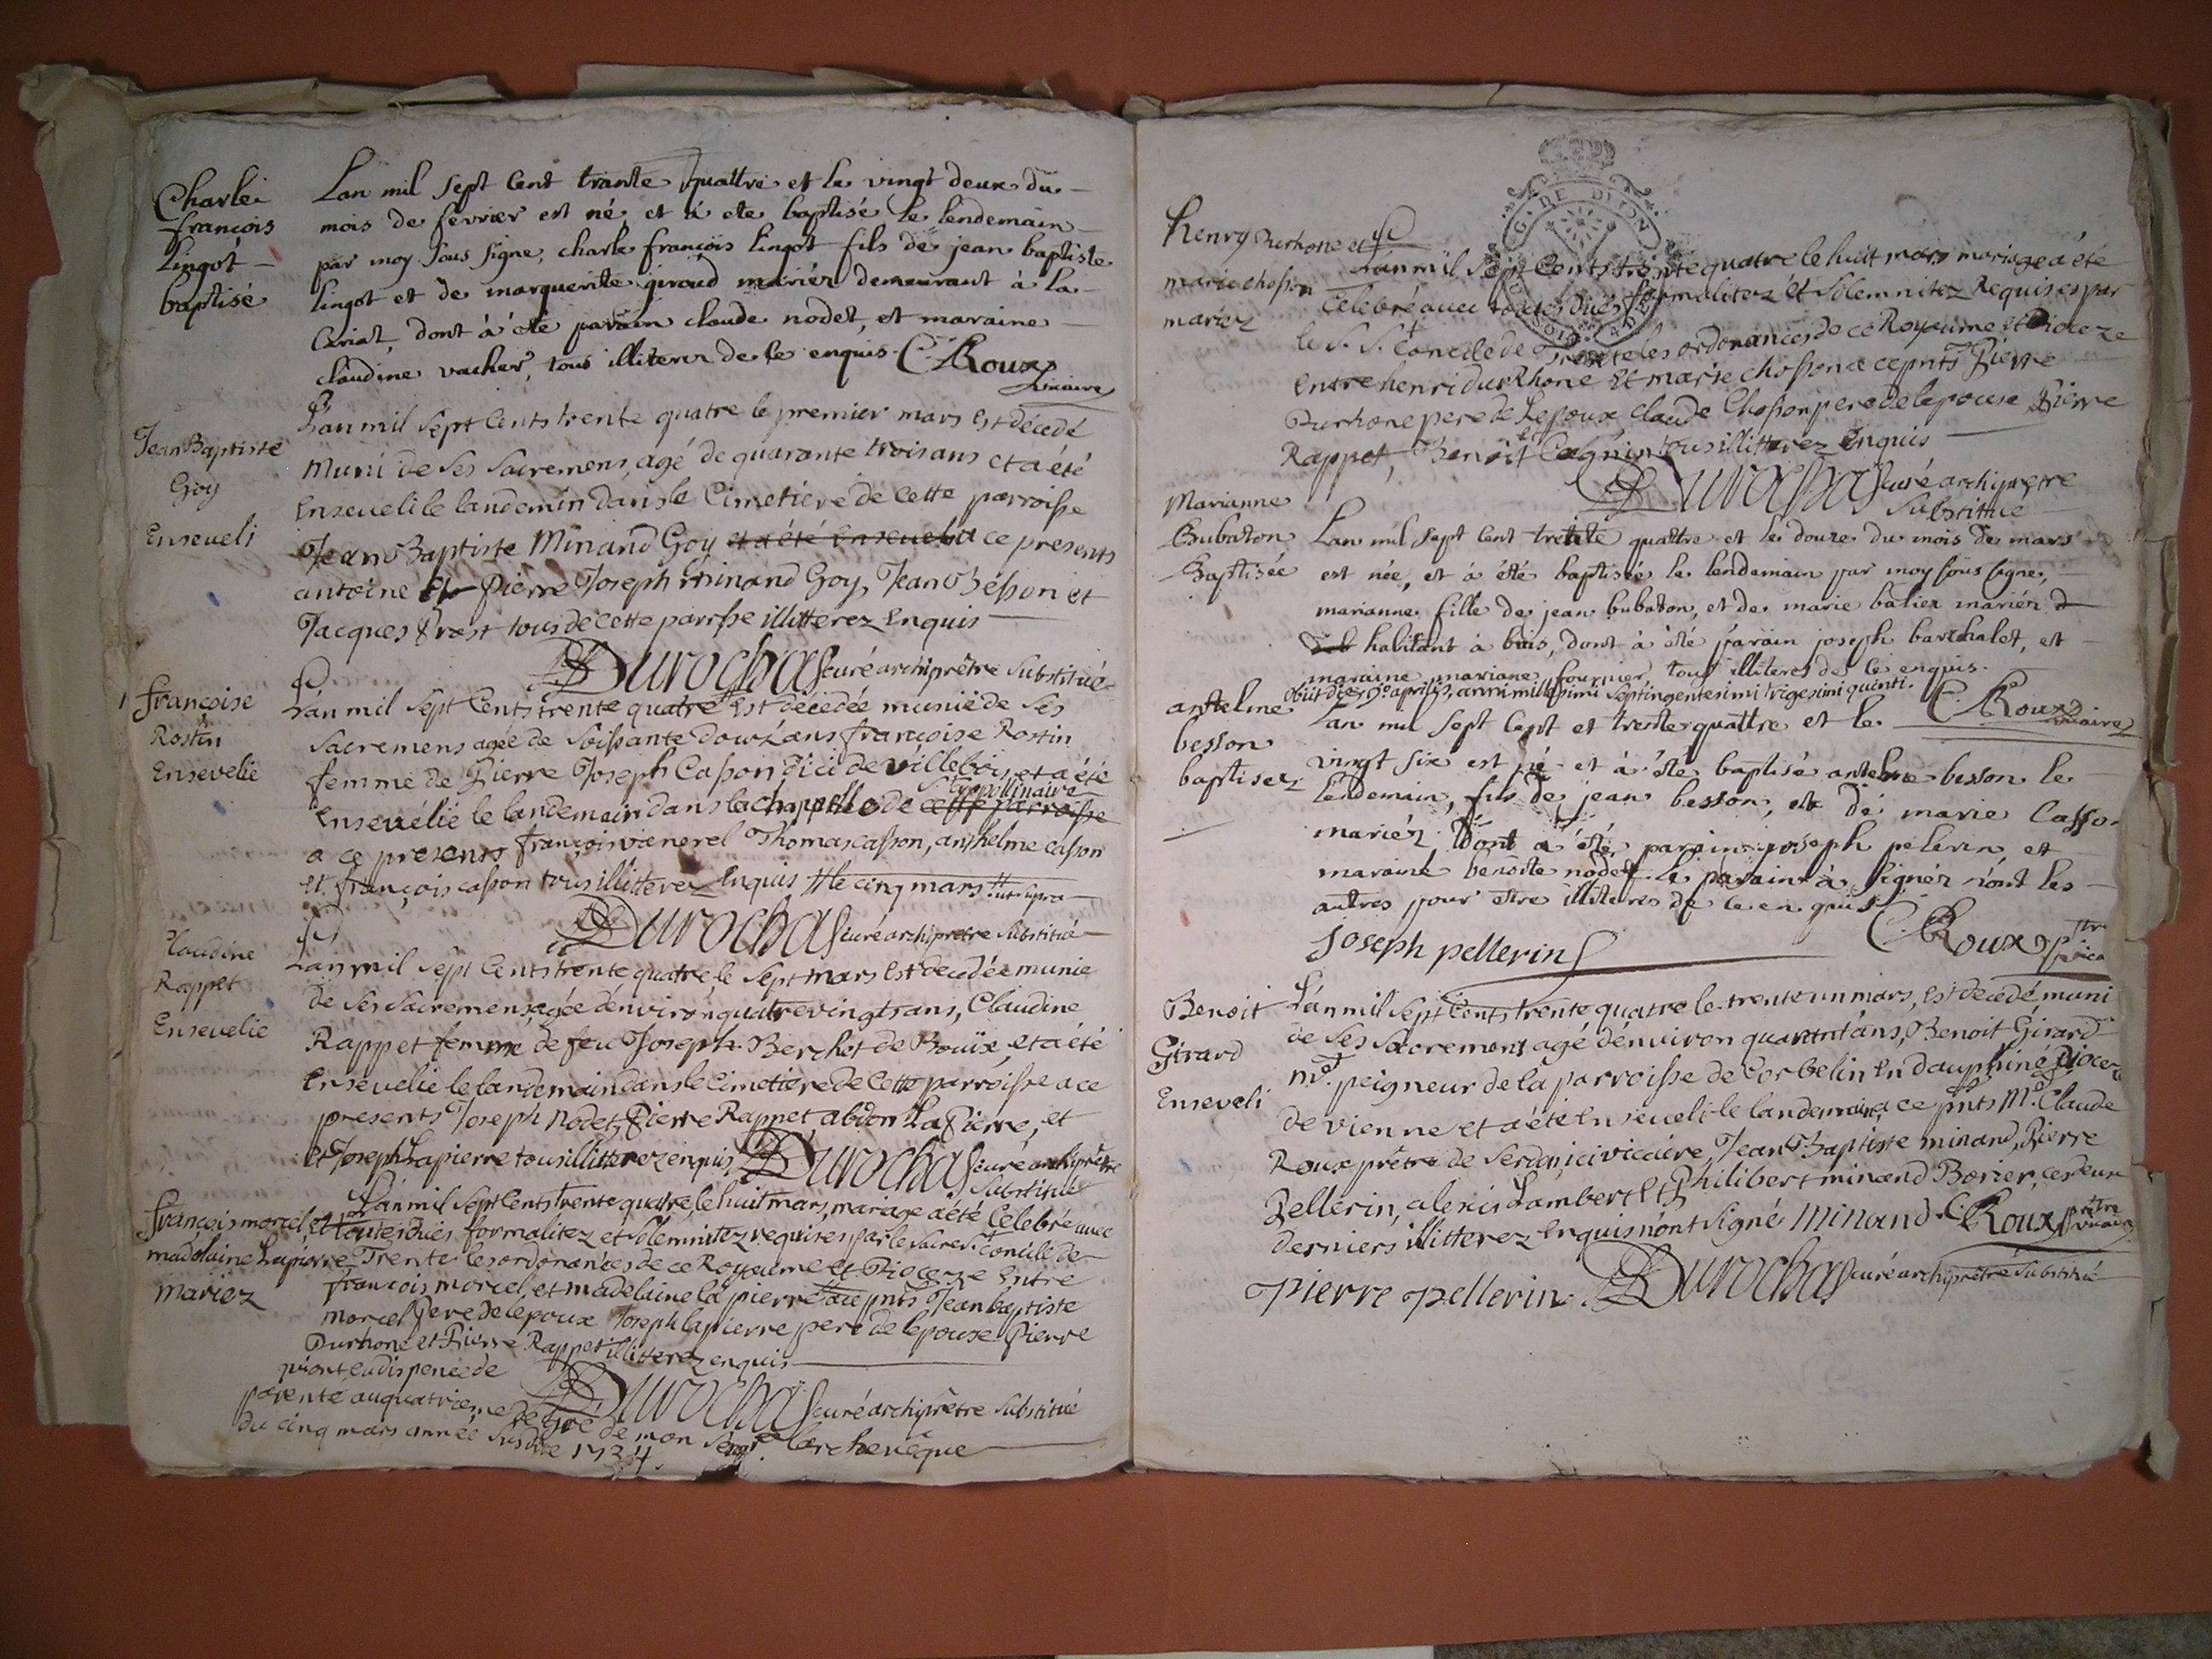 Charle
françois
lingot
baptisé
Lan mil sept cent trante quattre et le vingt deux du
mois de fevrier est né et à ete baptisé le lendemain
par moy sous signe, charle françois lingot fils de jean baptiste
lingot et de marguerite giroud mariéz demeurant à la
dont à été parain claude nodet, et maraine
claudine vacher, tous illiterez de ce enquis C. Roux
vicaire
Jean Baptiste
Goy
Enseveli
Lan mil sept cents trente quatre le premier mars est décedé
muni de ses sacremens, agé de quarante trois ans et a été
enseveli le landemin dans le cimetiere de cette parroisse
Jean Baptiste Minand Goy et a été enseveli a ce presents
antoine et pierre Joseph minand Goy, Jean Besson et
Jacques Prost tous de cette parrsse illitterez enquis
Durochat curé archiprêtre substitué
françoise
Rostin
Ensevelie
Lan mil sept cents trente quatre # est décédée munie de ses
sacremens agée de soissante douz ans françoise Rostin
femme de Pierre Joseph Casson dici de villebois, et a été
St appollinaire
ensevelie le landemain dans la chappelle de cette parroisse
a ce presents françois vienerel Thomas casson, anthelme casson
et françois casson tous illitterez enquis # le cinq mars # ut supra
Durochat curé archiprêtre substitué
Claudine
Rappet
Ensevelie
Lan mil sept cents trente quatre, le sept mars est decedée munie
de ses sacremens, agée dénviron quatre vingts ans, Claudine
Rappet femme de feu Joseph Berchet de Bouïx, et a été
ensevelie le landemain dans le cimetiere de cette parroisse a ce
presents Joseph Nodet, Pierre Rappet, abdon La Pierre, et
et Joseph Lapierre tous illitterez enquis Durochat curé archiprêtre
substitué
françois morcel et
madelaine Lapierre
mariez
Lán mil sept cents trente quatre, le huit mars, mariage a été celebré avec
toutes duës formalitez et solemnitez requises par le sacre St concile de
Trente les ordonances de ce Royaume et Dioceze entre
françois morcel, et madelaine la pierre # a ce pnts Jean baptiste
morcel pere de lépoux Joseph lapierre pere de lepouse Pierre
Durhone et Pierre Rappet illitterez enquis
qui ont eu dispence de
Durochat curé archiprêtre substitué
parenté au quatrieme degré de mon seigr. larchevêque
du cinq mars année susdite 1734.
Henry Durhone et
marie chosson
mariez
G. DE DIJON
Lán mil sept cents trente quatre le huit mars mariage a été
celebré avec toutes duës formalitez et solemnitez Requises par
le S. S. Concile de Trente les ordonances de ce Royaume et Dioceze
entre henri durRhone et marie chosson a ce pnts Pierre
Durhone pere de Lepoux Claude Chosson pere de lepouse Pierre
Rappet, Benoit et Cagnin tous illitterez enquis
Durochat curé archipretre
substitue
Marianne
Bubaton
Baptisée
Lan mil sept cent trente quattre et le douze du mois de mars
est née, et à été baptisée le lendemain par moy sous signe,
marianne fille de jean bubaton, et de marie balier mariéz
habitant à buis, dont à été parain joseph barchalet, et
maraine mariane fournier, tous illiteres de ce enquis.
obiit die 9a aprilis, anni millesimi septingentesimi trigesimi quinti.
C. Roux
vicaire
antelme
besson
baptisez
Lan mil sept cept et trente quattre et le
vingt six est né et à été baptisé antelme besson le
lendemain, fils de jean besson, et de marie Casson
mariéz, dont à été parain joseph pelerin et
maraine benoite nodet. le parain à signéz nont les
autres pour etre illiteres de ce en quis
joseph pellerin
C. Roux ptre
vicaire
Benoit
Girard
Enseveli
Lán mil sept cents trente quatre le trente un mars, est decedé muni
de ses sacremens agé dénviron quarant'ans, Benoit Girard
md. peigneur de la parroisse de Corbelin en dauphiné Dioceze
de vienne et a été enseveli le landemain, a ce pnts Me. Claude
Roux prêtre de Serdon ici vicaire, Jean Baptiste minand, Pierre
Pellerin, alexis Lambert et Philibert minand Borier, ces deux
derniers illitterez enquis n'ont signé Minand C. Roux prêtre
vicaire
pierre pellerin. Durochat curé archiprêtre substitué